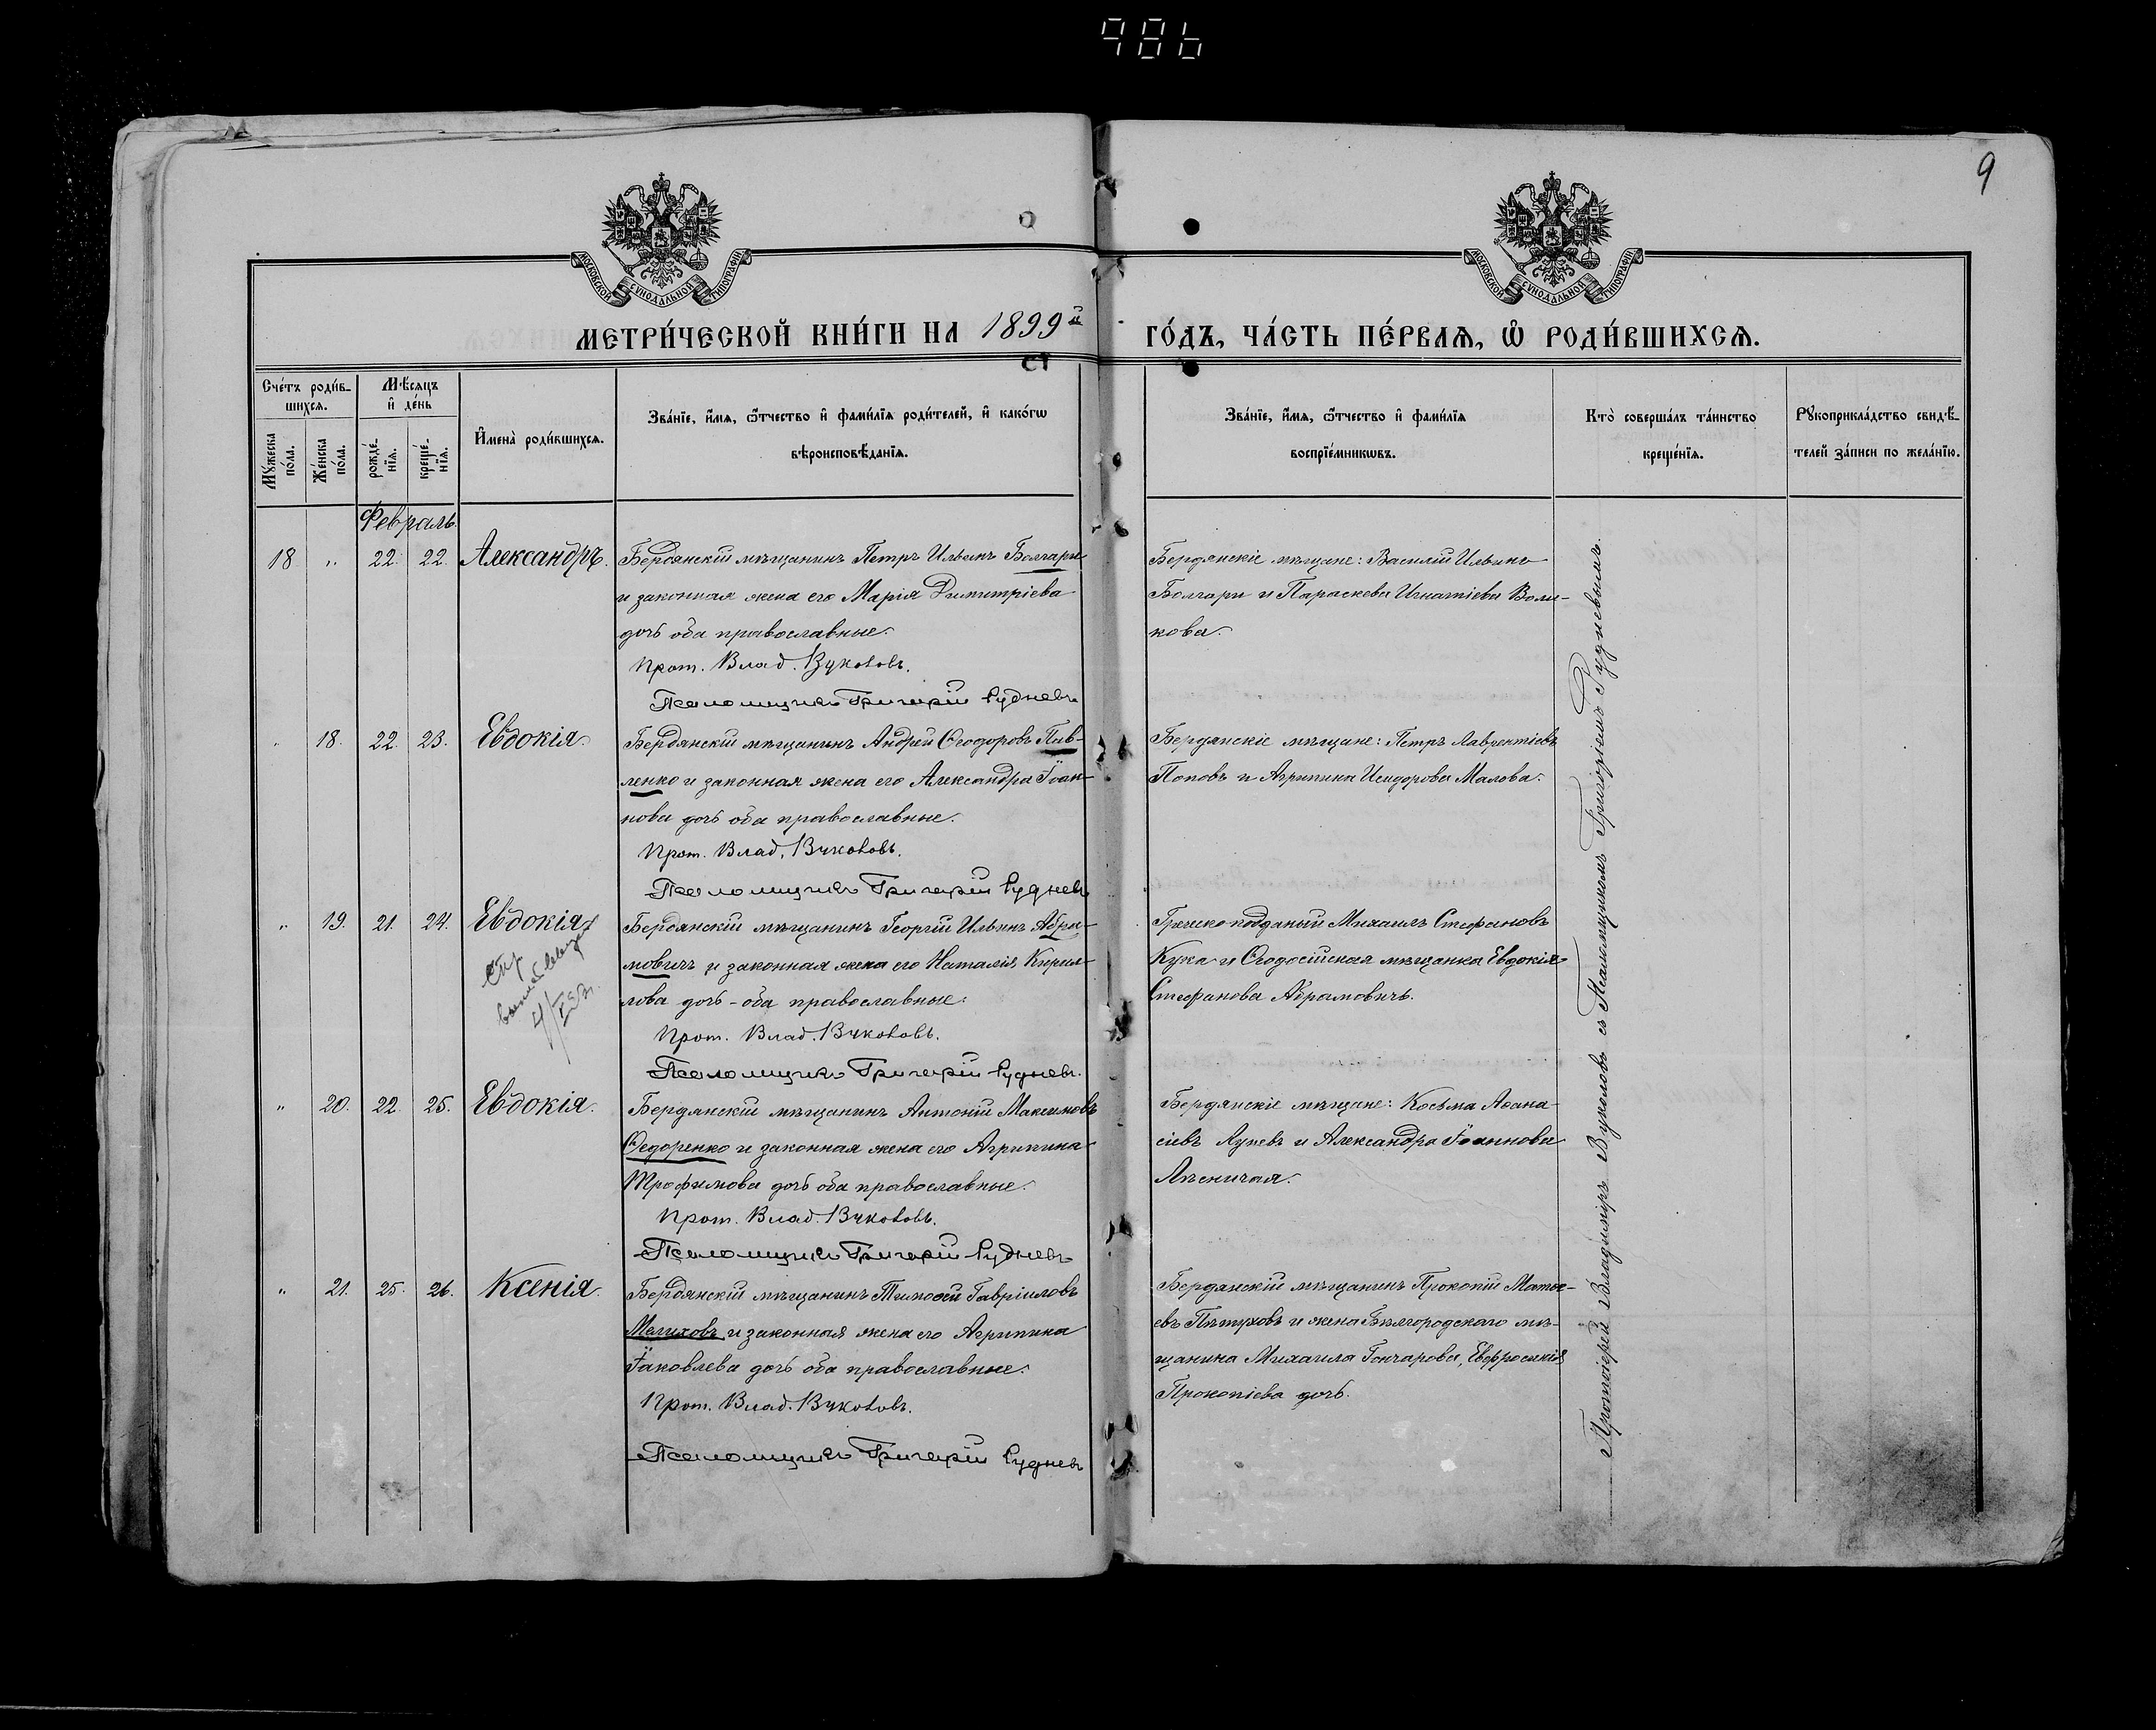 986
9
МОСКОВСКОЙ СУНОДАЛЬНОЙ ТИПОГРАФІИ
МОСКОВСКОЙ СУНОДАЛЬНОЙ ТИПОГРАФІИ
МЕТРИ́ЧЕСКОЙ КНИ́ГИ НА 1899й ГО́ДЪ, ЧА́СТЬ ПЕ́РВАѦ, Ѿ РОДИ́ВШИХСѦ.
Сче́тъ роди́в-
шихсѧ.
Мѣ́сѧцъ
и҆ де́нь
Мꙋ́жеска
по́ла.
Же́нска
по́ла.
рожде́-
нїѧ.
креще́-
нїѧ.
И҆мена̀ роди́вшихсѧ.
Зва́нїе, и҆́мѧ, ѻ҆́тчество и҆ фами́лїѧ роди́телей, и҆ како́гѡ
вѣроисповѣ́данїѧ.
Зва́нїе, и҆́мѧ, ѻ҆́тчество и҆ фами́лїѧ
воспрїе́мникѡвъ.
Кто̀ соверша́лъ та́инство
креще́нїѧ.
Рꙋкоприкла́дство свидѣ́-
телей за́писи по жела́нїю.
Февраль.
18. „ 22. 22. Александръ.
Бердянскій мѣщанинъ Петръ Ильинъ Болгари
и законная жена его Марія Димитріева
дочь оба православные.
Прот. Влад. Вуколовъ.
Псаломщикъ Григорій Рудневъ.
Бердянскіе мѣщане: Василій Ильинъ
Болгари и Параскева Игнатіева Воли-
кова.
„ 18. 22. 23. Евдокія.
Бердянскій мѣщанинъ Андрей Ѳеодоровъ Пив-
ленко и законная жена его Александра Іоан-
нова дочь оба православные.
Прот. Влад. Вуколовъ.
Псаломщикъ Григорій Рудневъ
Бердянскіе мѣщане: Петръ Лаврентіевъ
Поповъ и Агрипина Исидорова Малова.
„ 19. 21. 24. Евдокія
Бердянскій мѣщанинъ Георгій Ильинъ Абра-
мовичъ и законная жена его Наталія Кирил-
лова дочь - оба православные.
Прот. Влад. Вуколовъ.
Псаломщикъ Григорій Рудневъ.
Греческоподданый Михаилъ Стефановъ
Кука и Ѳеодосійская мѣщанка Евдокія
Стефанова Абрамовичъ.
„ 20. 22. 25. Евдокія.
Бердянскій мѣщанинъ Антоній Максимовъ
Ѳедоренко и законная жена его Агрипина
Трофимова дочь оба православные.
Прот. Влад. Вуколовъ.
Псаломщикъ Григорій Рудневъ
Бердянскіе мѣщане: Косьма Аѳана-
сіевъ и Александра Іоаннова
„ 21. 25. 26. Ксенія.
Бердянскій мѣщанинъ Тимоѳей Гавріиловъ
Мелиховъ и законная жена его Агрипина
Іаковлева дочь оба православные.
Прот. Влад. Вуколовъ.
Псаломщикъ Григорій Рудневъ
Бердянскій мѣщанинъ Прокопій Матѳе-
евъ Пѣтуховъ и жена Бѣлгородскаго мѣ-
щанина Михаила Гончарова, Евфросинія
Прокопіева дочь.
Протоіерей Владимиръ Вуколовъ съ Псаломщикомъ Григоріемъ Рудневымъ.